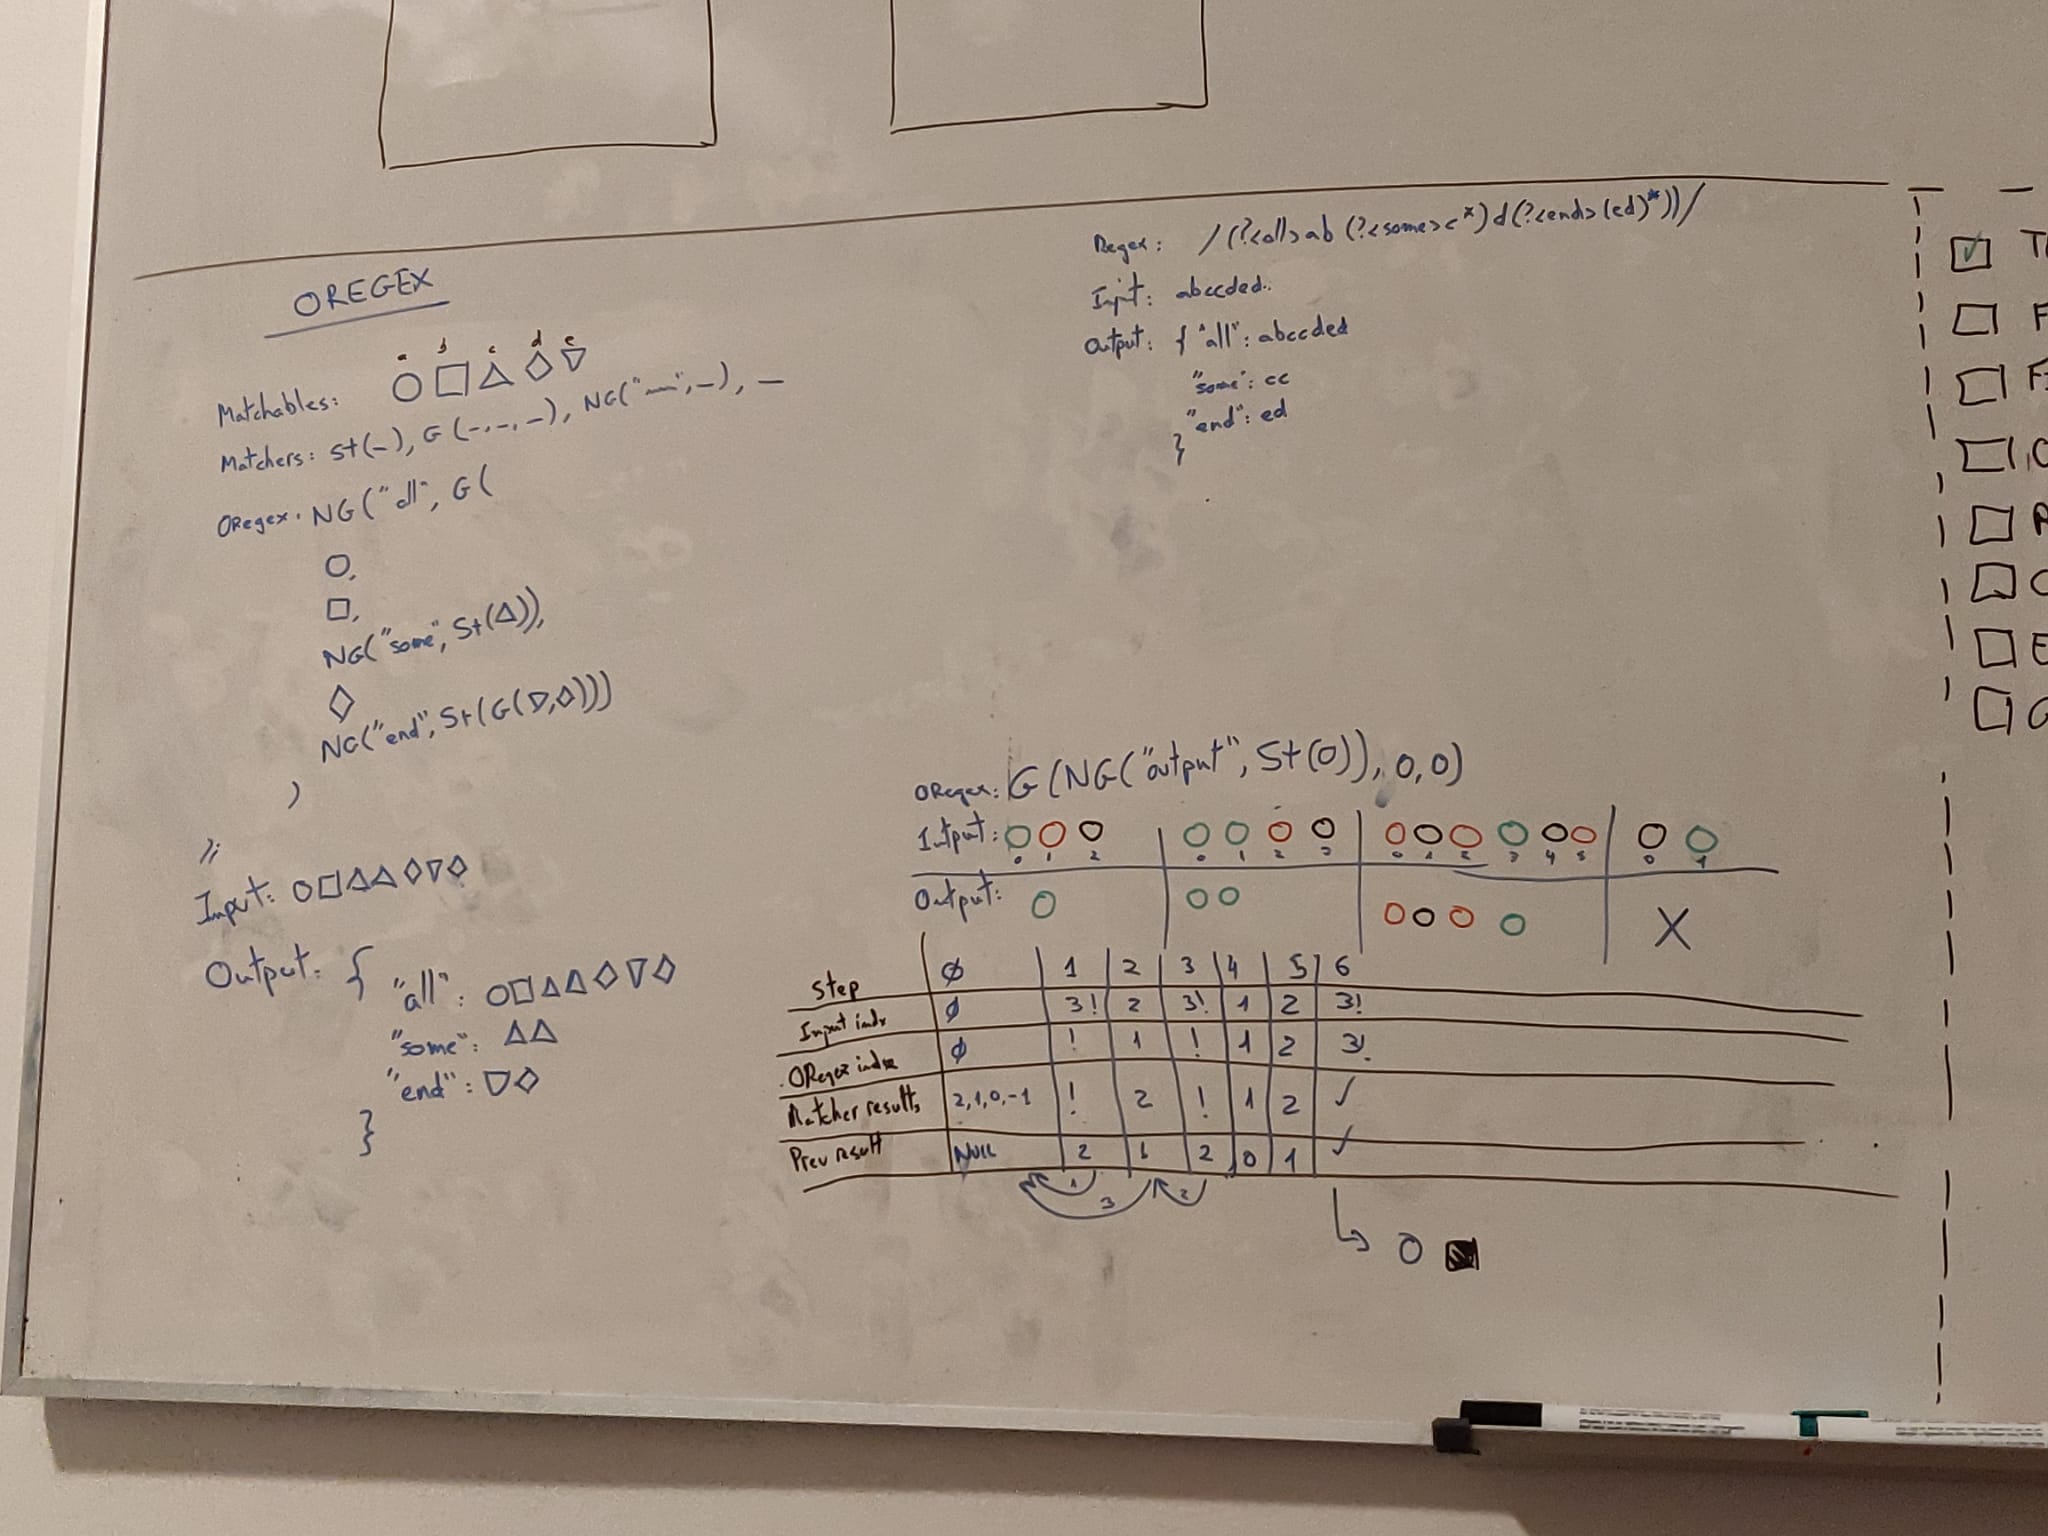 OREGEX
a b c d e
Matchables: ○ □ △ ◇ ▽
Matchers: St(_), G(_,_,_), NG("~",_), _
ORegex: NG("all", G(
○,
□,
NG("some", St(△)),
◇
NG("end", St(G(▽,◇)))
)
);
Input: ○□△△◇▽◇
Output: {
"all": ○□△△◇▽◇
"some": △△
"end": ▽◇
}
Regex: /(?<all>ab(?<some>c*)d(?<end>(ed)*))/
Input: abccded..
Output: { "all": abccded
"some": cc
"end": ed
}
ORegex: G(NG("output", St(O)), O, O)
Intput: ○ ○ ○ | ○ ○ ○ ○ | ○ ○ ○ ○ ○ ○ | ○ ○
0 1 2 0 1 2 3 0 1 2 3 4 5 0 1
Output: ○ | ○ ○ | ○ ○ ○ ○ | X
Step ∅ 1 2 3 4 5 6
Input indx ∅ 3! 2 3! 1 2 3!
ORegex index ∅ ! 1 ! 1 2 3!
Matcher results 2,1,0,-1 ! 2 ! 1 2 ✓
Prev result NULL 2 1 2 0 1 ✓
1 2
3
O
T
F
F
O
C
E